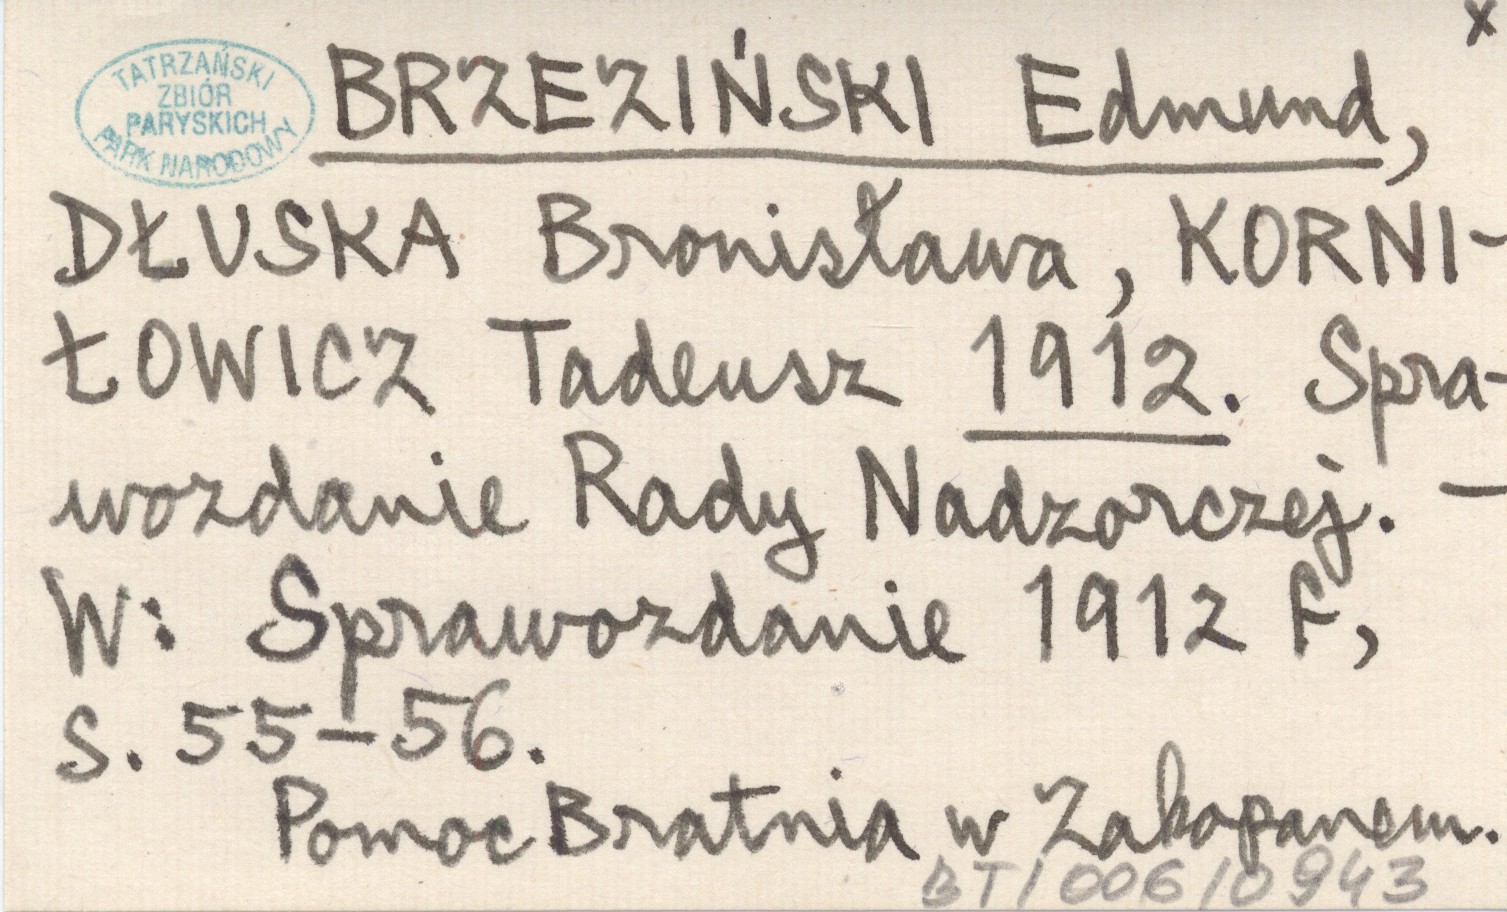 x
TATRZAŃSKI
ZBIÓR
PARYSKICH
PARK NARODOWY
BRZEZIŃSKI Edmund,
DŁUSKA Bronisława, KORNI-
ŁOWICZ Tadeusz 1912. Spra-
wozdanie Rady Nadzorczej. —
W: Sprawozdanie 1912 F,
s. 55-56.
Pomoc Bratnia w Zakopanem.
BT/006/0943